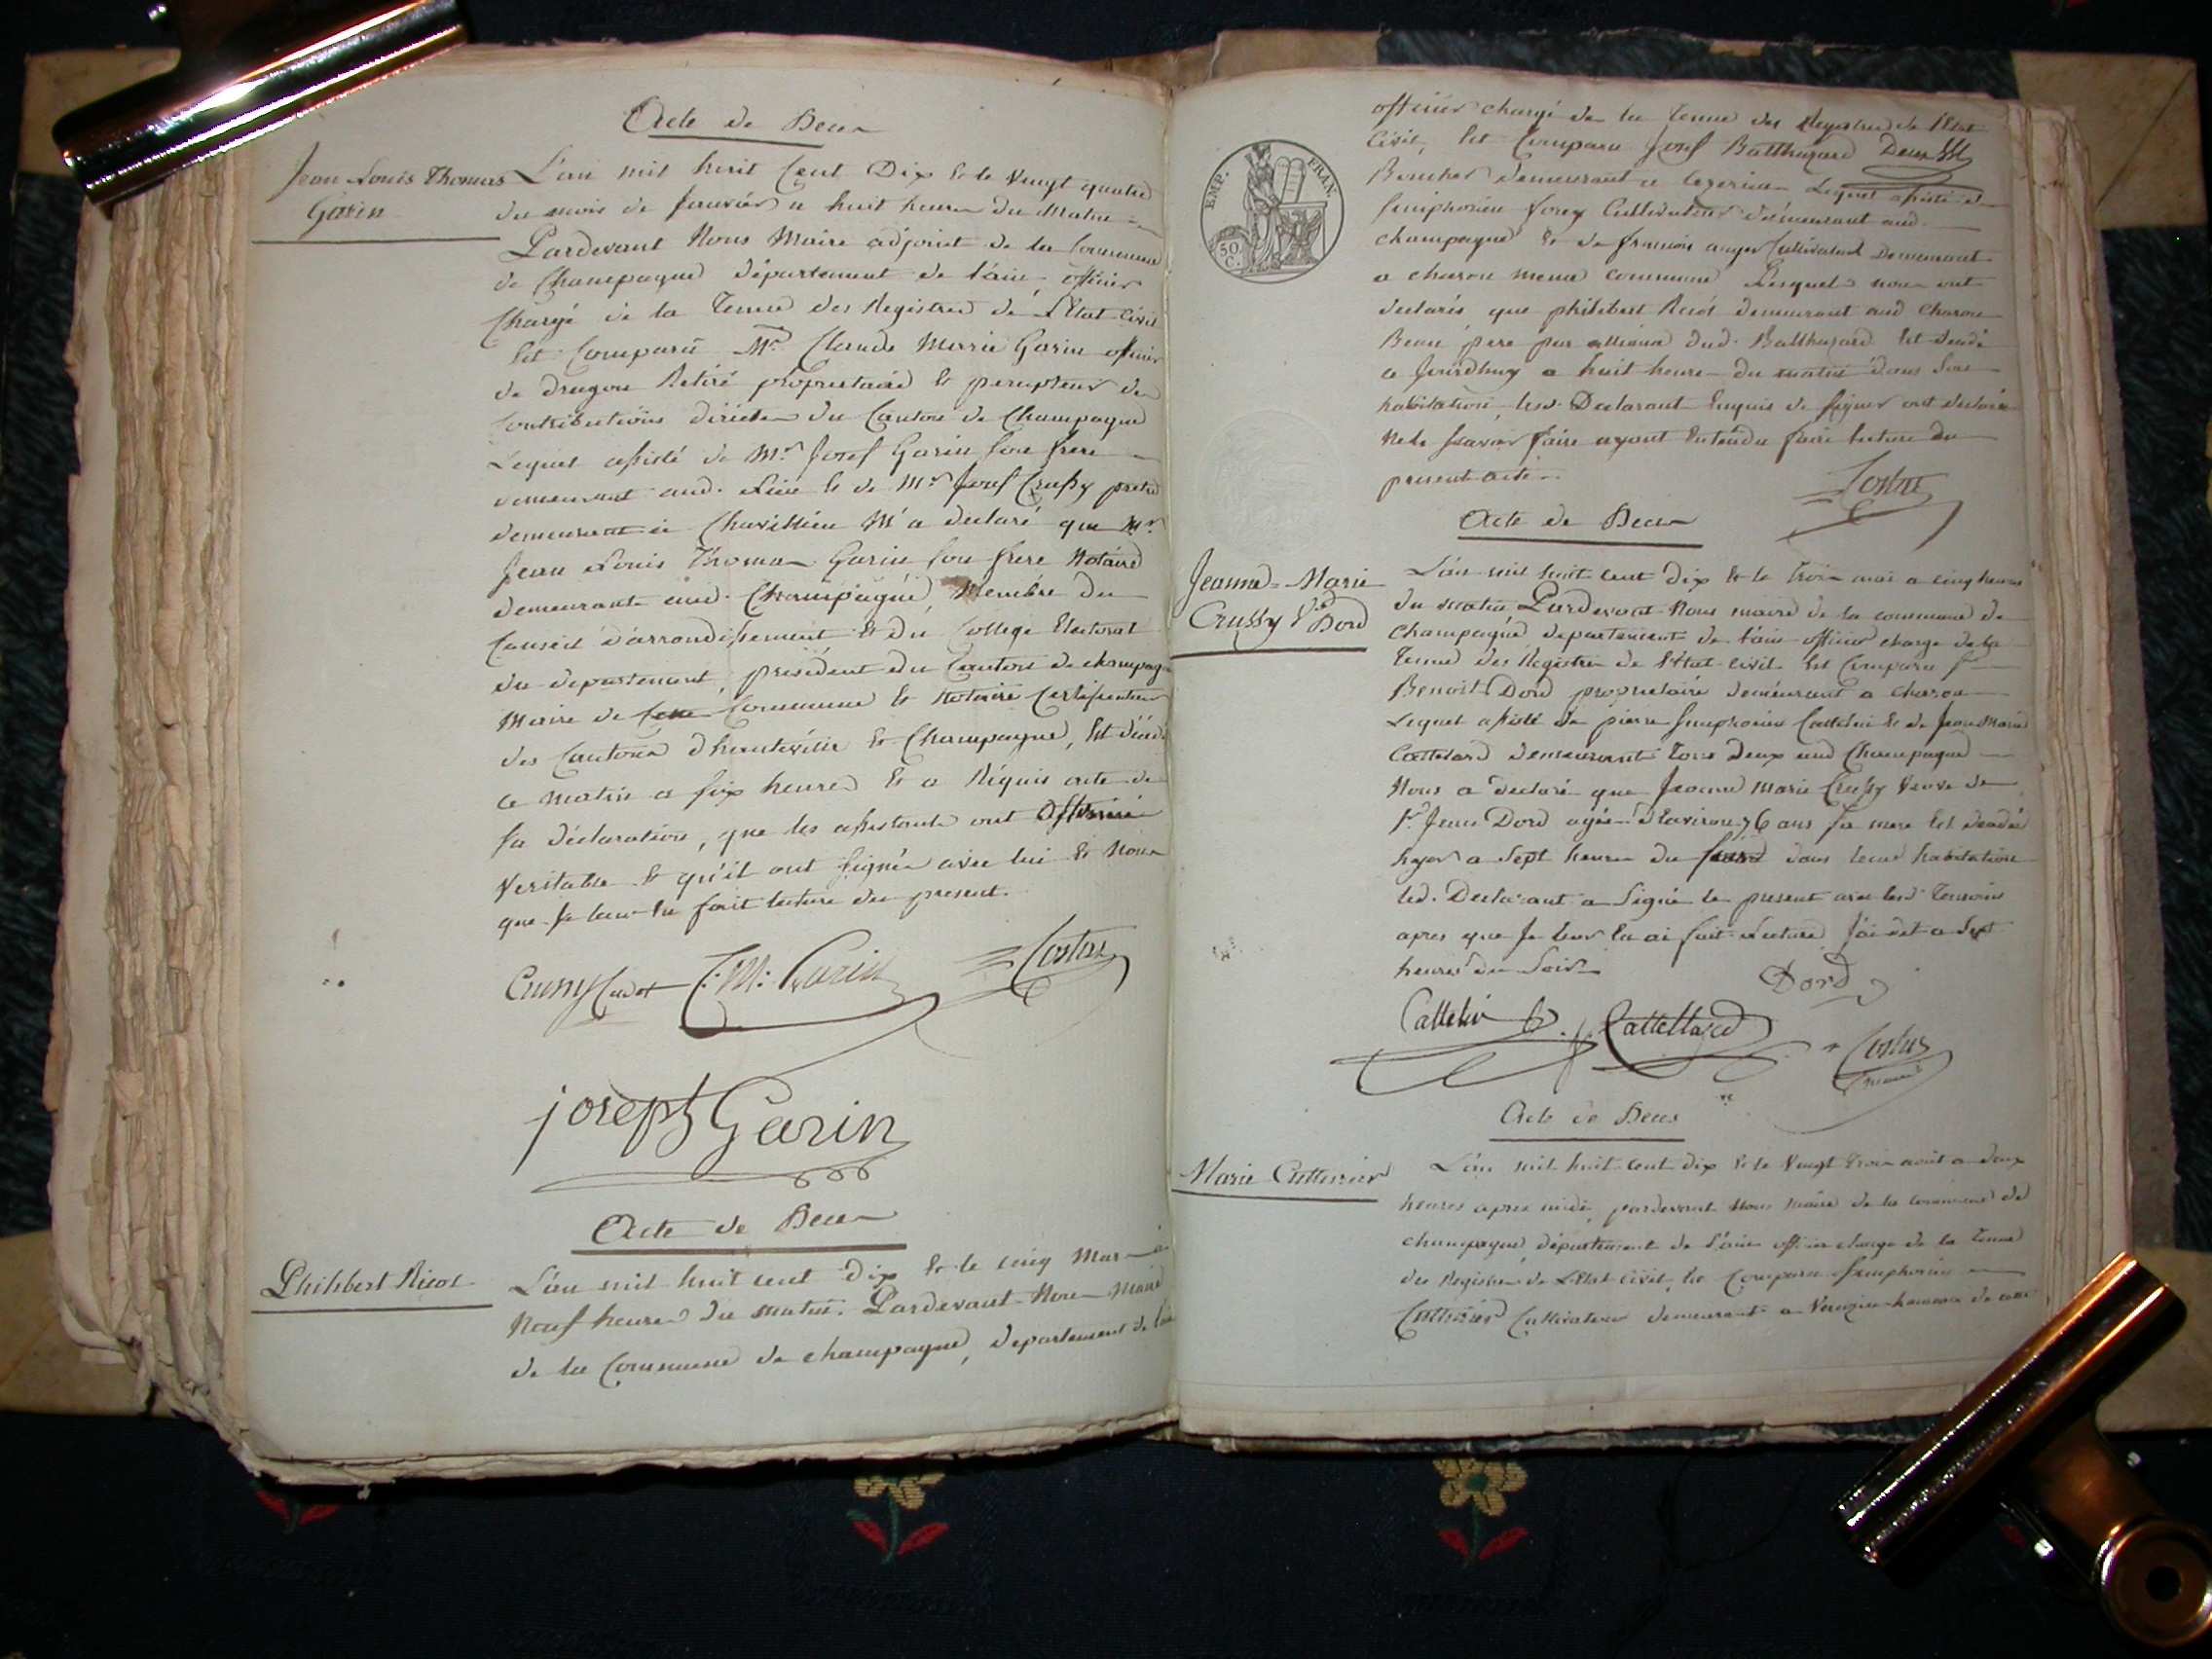 Acte de Deces
Jean Louis Thomas
Garin
L'an mil huit Cent Dix & le Vingt quatre
du mois de Janvier a huit heures du Matin =
Pardevant Nous Maire adjoint de la Commune
de Champagne département de l'ain, officier
Chargé de la tenue des Registres de L'Etat Civil
Est Comparu Mr. Claude Marie Garin officier
de dragon Retiré propriétaire & percepteur de
Contributions directes du Canton de Champagne
Lequel assisté de Mr. Josef Garin son frere
demeurant aud. Lieu & de Mr. Josef Crussy pretre
demeurant à Chavillieu M'a declaré que Mr.
Jean Louis Thomas Garin son frere Notaire
demeurant aud. Champagne, Membre du
Conseil d'arrondissement & du College Electoral
du departement, président du Canton de champagne
Maire de Commune & Notaire Certificateur
des Cantons d'hauteville & Champagne, Est décédé
Ce matin a six heures & a Réquis acte de
sa déclaration, que les assistants ont affirmé
Veritable & qu'il ont signé avec lui & Nous
que Je leur En fait lecture du present.
C. M. Garin
Costus
joseph Garin
Acte de Deces
Philibert Ricol
L'an mil huit cent Dix & le cinq Mars a
Neuf heures du matin. Pardevant Nous Maire
de la Commune de champagne, departement de l'ain
officier chargé de la tenue des Registres de l'Etat
Civil, Est Comparu Josef Balthazard
demeurant a Lequel assisté de
Simphorien forey Cultivateur demeurant aud.
champagne & de francois auger Cultivateur Demeurant
a charon meme commune Lesquels nous ont
declarés que philibert Ricol demeurant aud charon
Beau pere par alliance dud. Balthazard Est decedé
a Jourdhuy a huit heures du matin dans son
habitation, lesd. Declarant Enquis de signer ont declaré
ne le scavoir faire ayant Entendu faire lecture du
present acte.
Costus
Acte de Deces
EMP. FRAN.
50 C.
Jeanne = Marie
Crussy Ve Dord
L'an mil huit cent dix & le trois mai a cinq heures
du matin Pardevant Nous maire de la commune de
Champagne departement de l'ain officier chargé de la
Tenue des Registres de l'Etat civil Est Comparu Sr
Benoit Dord proprietaire demeurant a charon
Lequel assisté de pierre Simphorien Cattelin & de Jean Marie
Cattelard demeurants tous deux aud Champagne
Nous a declaré que Jeanne Marie Crussy Veuve de
Sr. Jean Dord agée d'environ 76 ans sa mere Est decedée
hyer a Sept heures du dans leur habitation
led. Declarant a Signé le present avec lesd. Temoins
apres que Je leur En ai fait Lecture J'ai dit a Sept
heures du Soir
Dord
Cattelin Cattellard
Costus
maire
Acte de Deces
Marie Cuttivier
L'an mil huit cent dix & le Vingt trois août a deux
heures apres midi, pardevant Nous maire de la commune de
champagne département de l'ain officier chargé de la tenue
des Registres de L'Etat Civil, Est Comparu Simphorien
Cultivateur demeurant a hameau de cette